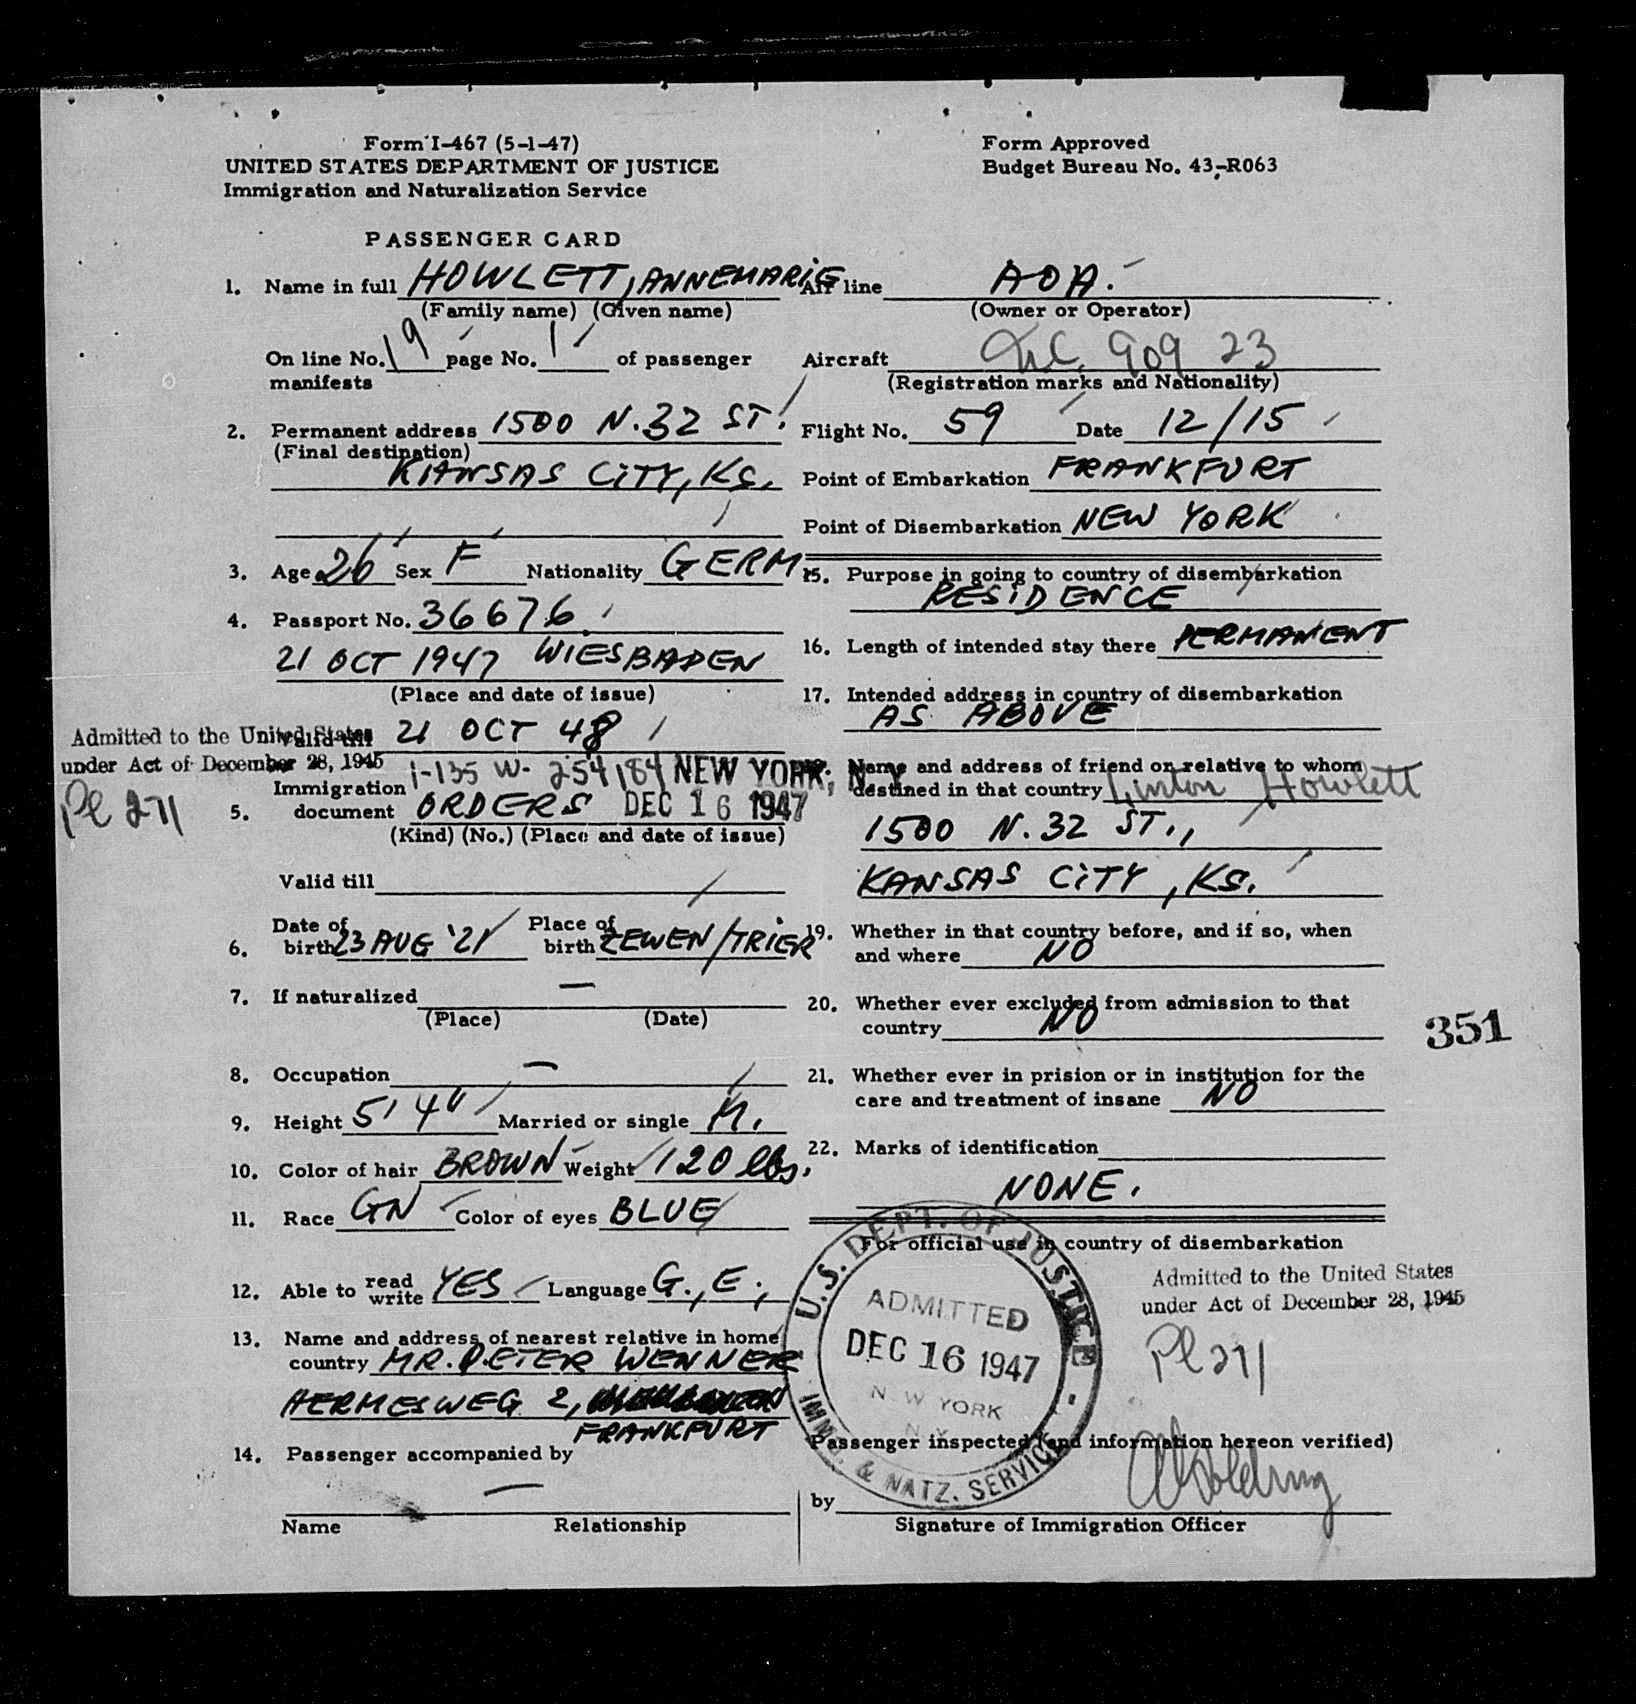 Form I-467 (5-1-47)
UNITED STATES DEPARTMENT OF JUSTICE
Immigration and Naturalization Service
Form Approved
Budget Bureau No. 43-R063
PASSENGER CARD
1. Name in full HOWLETT, ANNEMARIE
(Family name) (Given name)
On line No. 19 page No. 1 of passenger
manifests
2. Permanent address 1500 N. 32 ST.
(Final destination)
KANSAS CITY, KS.
3. Age 26 Sex F Nationality GERM.
4. Passport No. 36676
21 OCT 1947 WIESBADEN
(Place and date of issue)
Valid till 21 OCT 48
Admitted to the United States
under Act of December 28, 1945
Pl 271
I-135 W- 254,184 NEW YORK, N.Y.
5. Immigration
document ORDERS DEC 16 1947
(Kind) (No.) (Place and date of issue)
Valid till
6. Date of birth 23 AUG '21 Place of birth ZEWEN/TRIER
7. If naturalized —
(Place) (Date)
8. Occupation —
9. Height 5' 4" Married or single M.
10. Color of hair BROWN Weight 120 lbs.
11. Race GN Color of eyes BLUE
12. Able to read write YES Language G., E.,
13. Name and address of nearest relative in home
country MR. PETER WENNER
HERMESWEG 2,
FRANKFURT
14. Passenger accompanied by
—
Name Relationship
Air line AOA.
(Owner or Operator)
Aircraft N.C. 909 23
(Registration marks and Nationality)
Flight No. 59 Date 12/15
Point of Embarkation FRANKFURT
Point of Disembarkation NEW YORK
15. Purpose in going to country of disembarkation
RESIDENCE
16. Length of intended stay there PERMANENT
17. Intended address in country of disembarkation
AS ABOVE
Name and address of friend or relative to whom
destined in that country Linton Howlett
1500 N. 32 ST.,
KANSAS CITY, KS.
19. Whether in that country before, and if so, when
and where NO
20. Whether ever excluded from admission to that
country NO
21. Whether ever in prision or in institution for the
care and treatment of insane NO
22. Marks of identification
NONE.
351
For official use in country of disembarkation
U.S. DEPT. OF JUSTICE
ADMITTED
DEC 16 1947
NEW YORK
N.Y.
IMMG. & NATZ. SERVICE
Admitted to the United States
under Act of December 28, 1945
Pl 271
Passenger inspected (and information hereon verified)
by
Signature of Immigration Officer